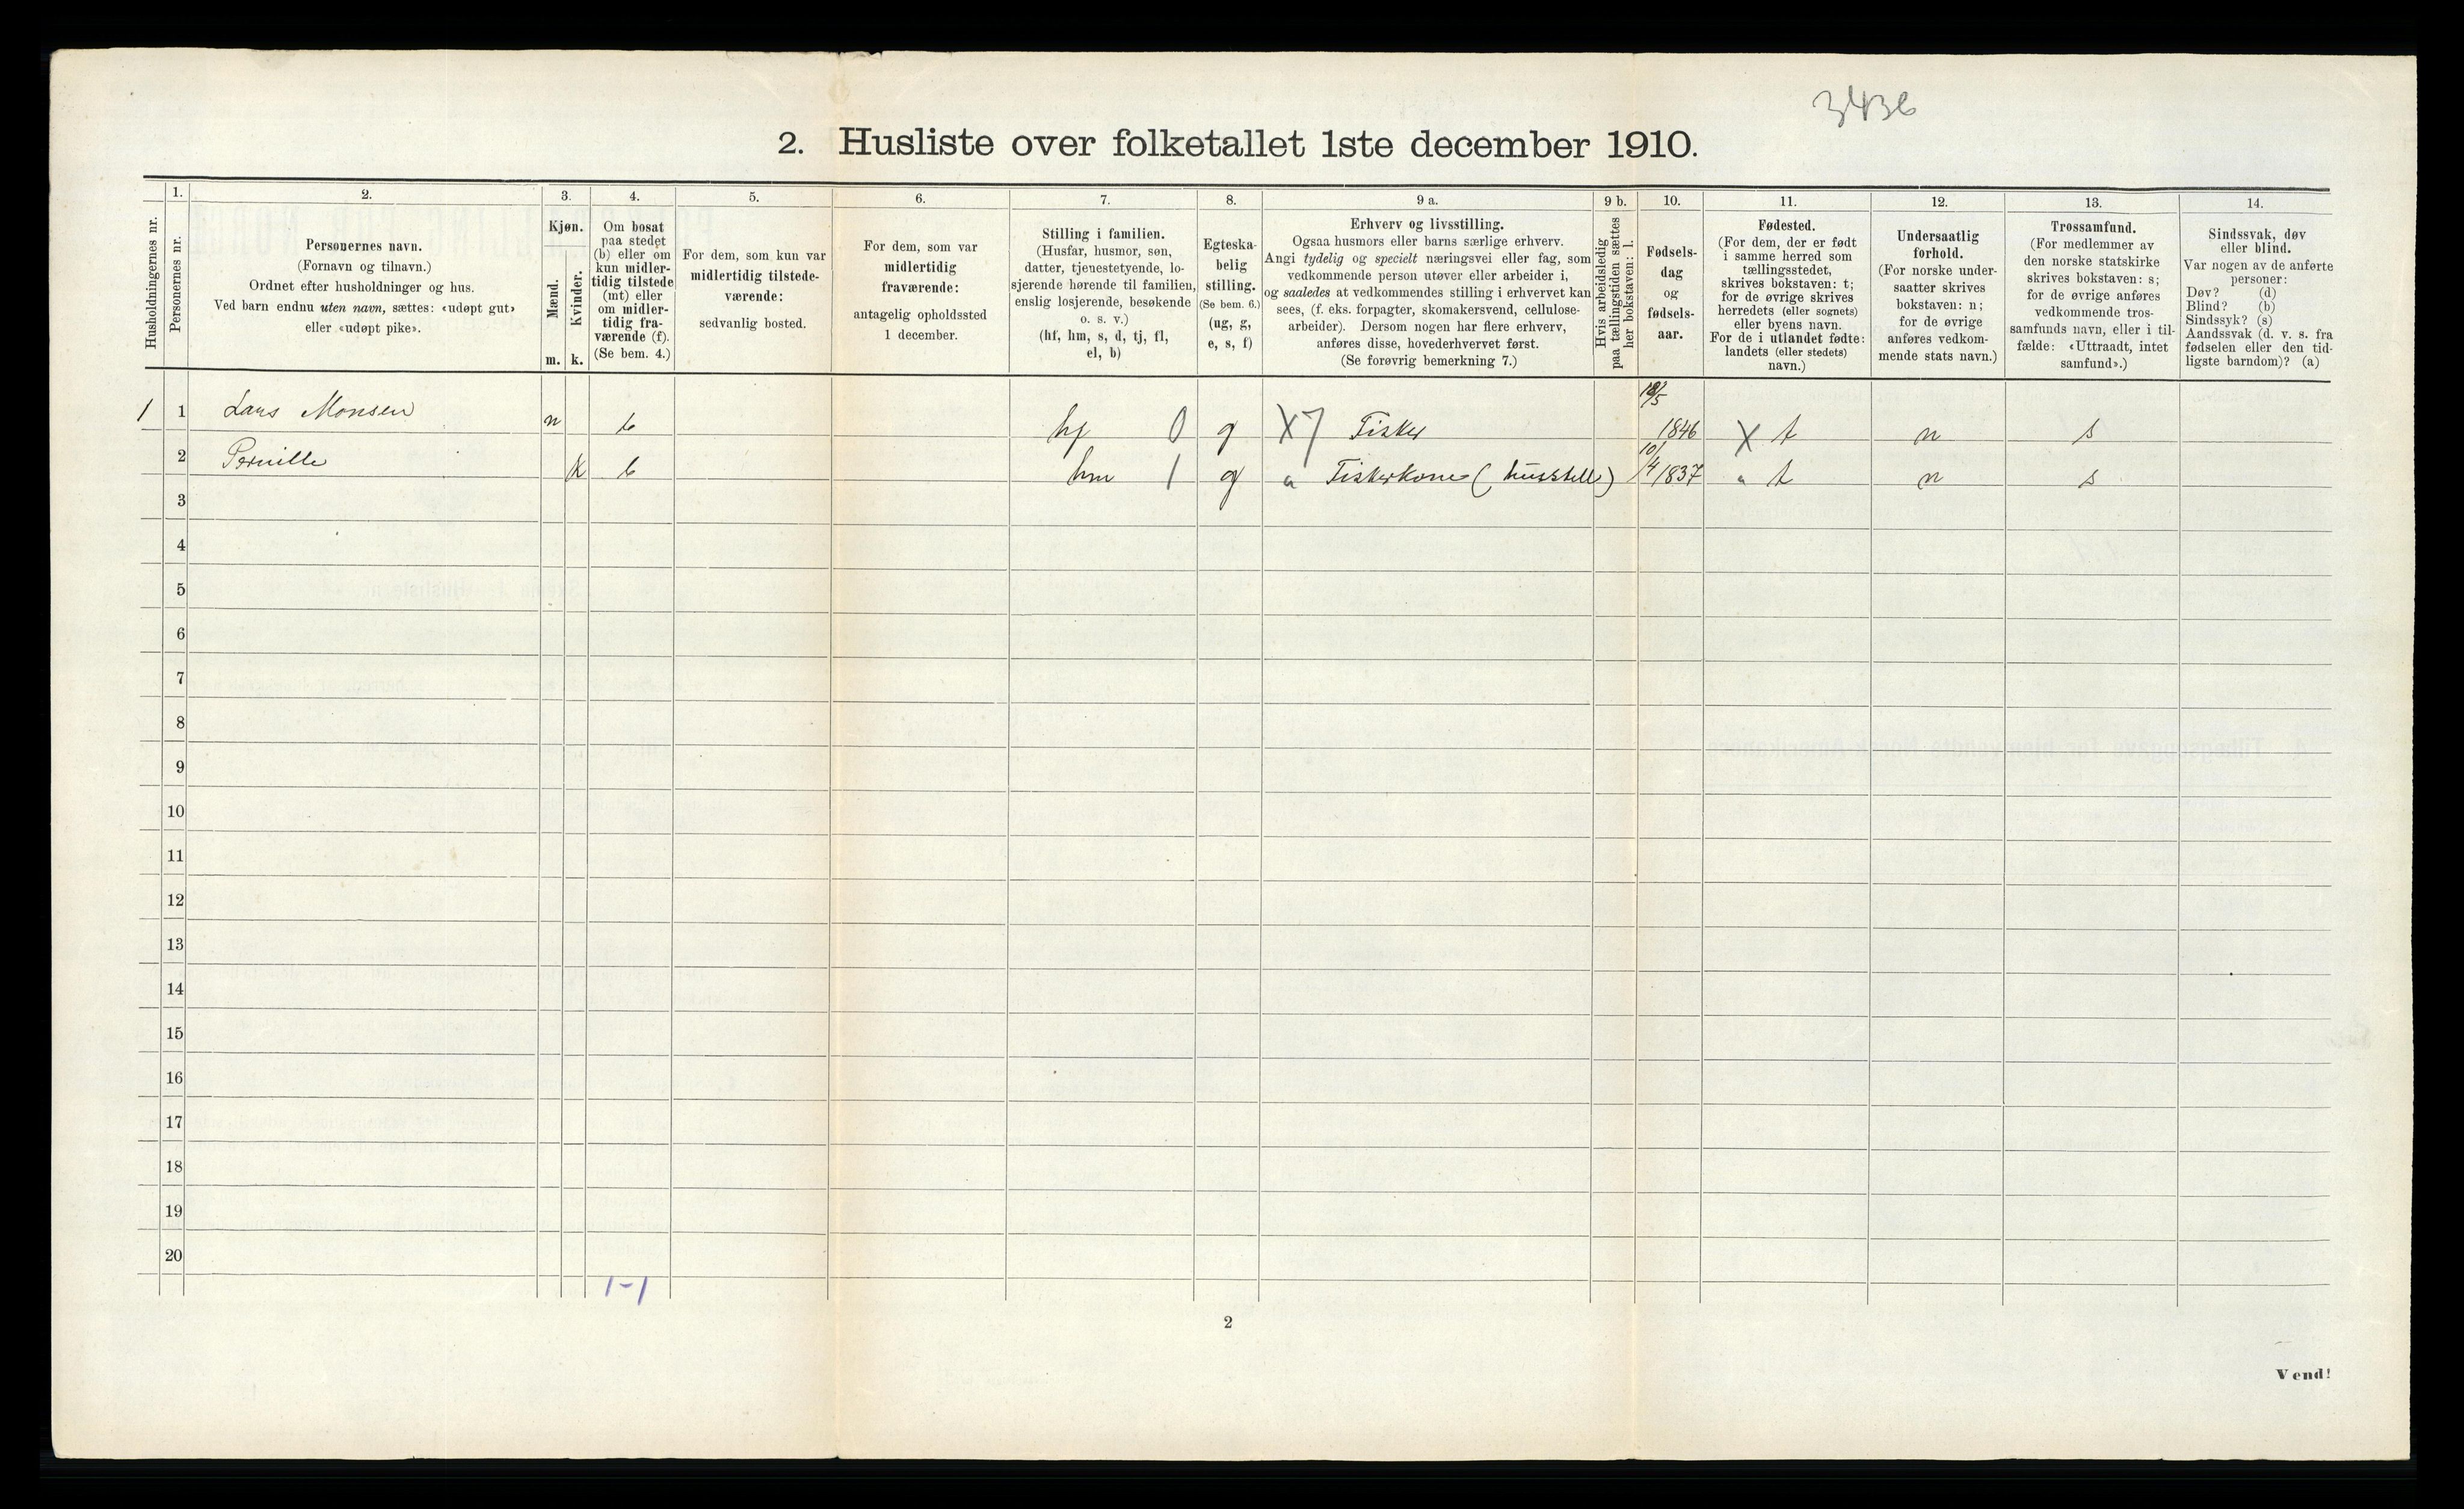 3436
2. Husliste over folketallet 1ste december 1910.
Husholdningernes nr.
1.
Personernes nr.
2.
Personernes navn.
(Fornavn og tilnavn.)
Ordnet efter husholdninger og hus.
Ved barn endnu uten navn, sættes: «udøpt gut»
eller «udøpt pike».
3.
Kjøn.
Mænd.
m.
Kvinder.
k.
4.
Om bosat
paa stedet
(b) eller om
kun midler-
tidig tilstede
(mt) eller
om midler-
tidig fra-
værende (f).
(Se bem. 4.)
5.
For dem, som kun var
midlertidig tilstede-
værende:
sedvanlig bosted.
6.
For dem, som var
midlertidig
fraværende:
antagelig opholdssted
1 december.
7.
Stilling i familien.
(Husfar, husmor, søn,
datter, tjenestetyende, lo-
sjerende hørende til familien,
enslig losjerende, besøkende
o. s. v.)
(hf, hm, s, d, tj, fl,
el, b)
8.
Egteska-
belig
stilling.
(Se bem. 6.)
(ug, g,
e, s, f)
9 a.
Erhverv og livsstilling.
Ogsaa husmors eller barns særlige erhverv.
Angi tydelig og specielt næringsvei eller fag, som
vedkommende person utøver eller arbeider i,
og saaledes at vedkommendes stilling i erhvervet kan
sees, (f. eks. forpagter, skomakersvend, cellulose-
arbeider). Dersom nogen har flere erhverv,
anføres disse, hovederhvervet først.
(Se forøvrig bemerkning 7.)
9 b.
Hvis arbeidsledig
paa tællingstiden sættes
her bokstaven: l.
10.
Fødsels-
dag
og
fødsels-
aar.
11.
Fødested.
(For dem, der er født
i samme herred som
tællingsstedet,
skrives bokstaven: t;
for de øvrige skrives
herredets (eller sognets)
eller byens navn.
For de i utlandet fødte:
landets (eller stedets)
navn.)
12.
Undersaatlig
forhold.
(For norske under-
saatter skrives
bokstaven: n;
for de øvrige
anføres vedkom-
mende stats navn.)
13.
Trossamfund.
(For medlemmer av
den norske statskirke
skrives bokstaven: s;
for de øvrige anføres
vedkommende tros-
samfunds navn, eller i til-
fælde: «Uttraadt, intet
samfund».)
14.
Sindssvak, døv
eller blind.
Var nogen av de anførte
personer:
Døv? (d)
Blind? (b)
Sindssyk? (s)
Aandssvak (d. v. s. fra
fødselen eller den tid-
ligste barndom)? (a)
1 1 Lars Monsen m b hf 0 g X7 Fisker 1846 X t n s
2 Pernille k b hm 1 g " Fiskerkone (husstell) 10/4 1837 " t n s
3
4
5
6
7
8
9
10
11
12
13
14
15
16
17
18
19
20
1-1
2
Vend!